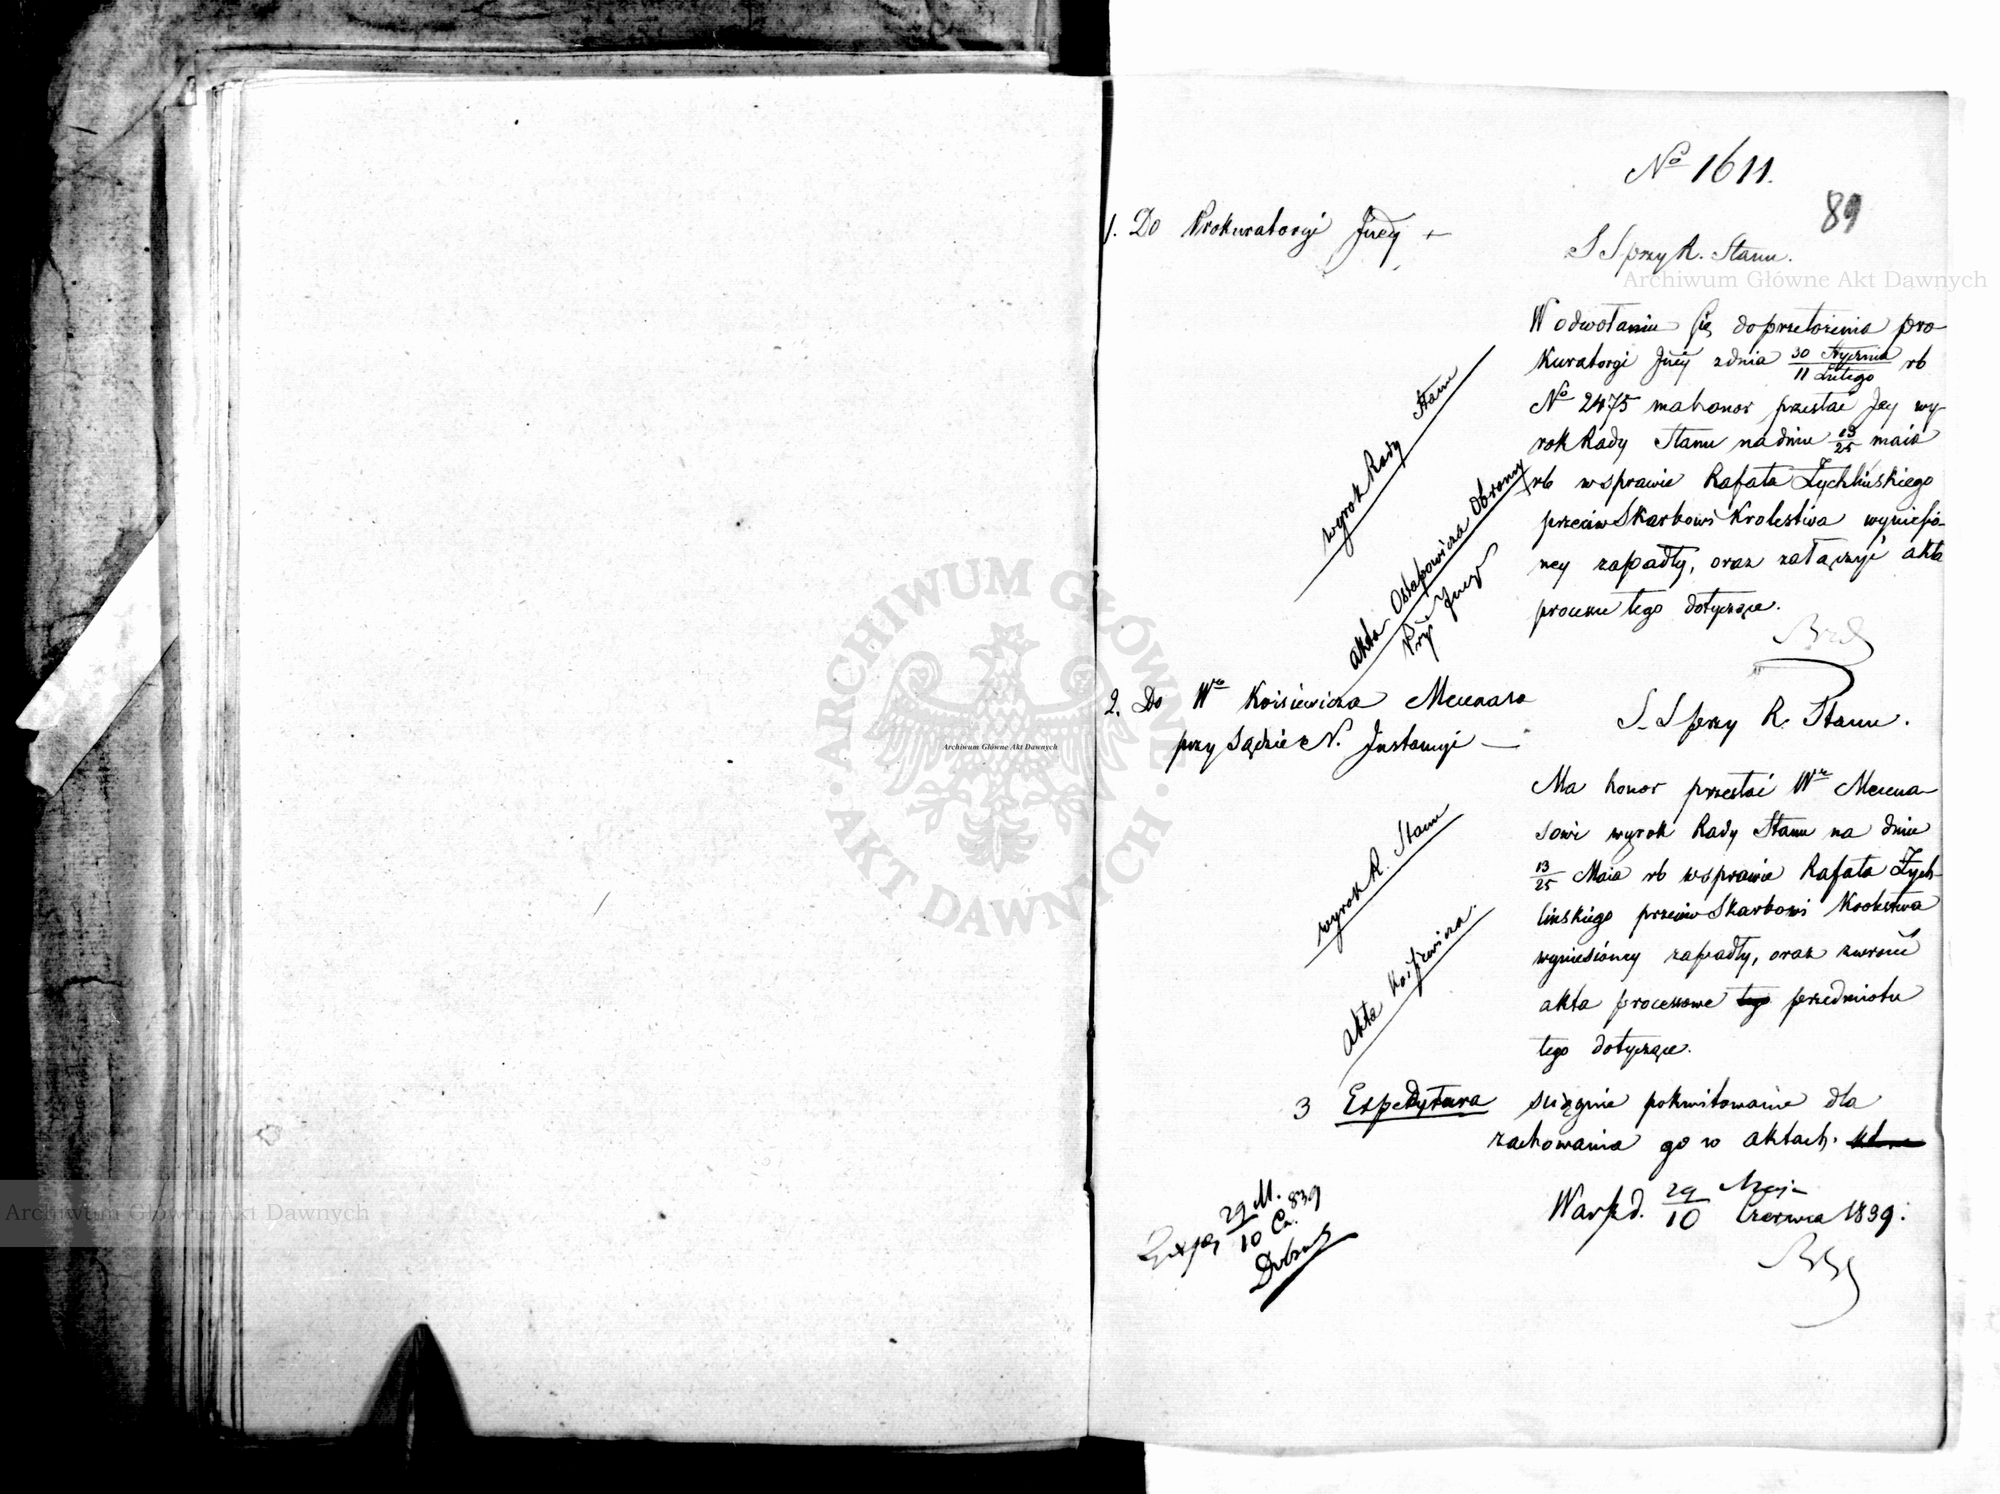 No 1611.
89
1. Do Prokuratorgi Jney
S S przy R. Stanu.
W odwołaniu się do przełożenia pro-
kuratorgi Jney z dnia 30 Stycznia / 11 Lutego rb
No 2475 ma honor przesłać Jey wy-
rok Rady Stanu na dniu 13/25 maia
rb w sprawie Rafała Zychlińskiego
przeciw Skarbowi Krolestwa wyniesio-
ney zapadły, oraz załączyć akta
processu tego dotyczące.
wyrok Rady Stanu
akta Ostapowicza Obrońcy
Pry Jney
2. Do Wo Koisiewicza Mecenasa
przy Sądzie N. Instancyi —
S. S przy R. Stanu.
Ma honor przesłać Wu Mecena-
sowi wyrok Rady Stanu na dniu
13/25 Maia rb w sprawie Rafała Zych-
linskiego przeciw Skarbowi Krolestwa
wyniesioney zapadły, oraz zwrocić
akta processowe tego przedmiotu
tego dotyczące.
wyrok R. Stanu
akta Koisiewicza.
3 Expedytura sciągnie pokwitowanie dla
zachowania go w aktach.
Warsz d. 29 Maja / 10 Czerwca 1839.
29 M. / 10 Cz. 839
Archiwum Główne Akt Dawnych
Archiwum Główne Akt Dawnych
Archiwum Główne Akt Dawnych
ARCHIWUM GŁÓWNE
AKT DAWNYCH